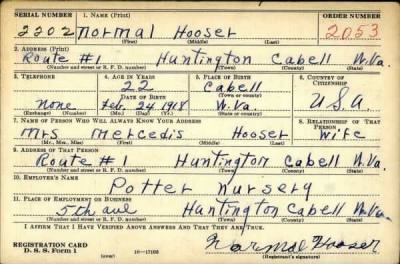 SERIAL NUMBER 1. NAME (Print) ORDER NUMBER
2202 Normal Hooser 2053
(First) (Middle) (Last)
2. ADDRESS (Print)
Route #1 Huntington Cabell W.Va.
(Number and street or R. F. D. number) (Town) (County) (State)
3. TELEPHONE 4. AGE IN YEARS 5. PLACE OF BIRTH 6. COUNTRY OF CITIZENSHIP
22 Cabell
DATE OF BIRTH (Town or county)
None Feb. 24 1918 W.Va. U.S.A.
(Exchange) (No.) (Mo.) (Day) (Yr.) (State or country)
7. NAME OF PERSON WHO WILL ALWAYS KNOW YOUR ADDRESS 8. RELATIONSHIP OF THAT PERSON
Mrs Mercedis Hooser Wife
(Mr., Mrs., Miss) (First) (Middle) (Last)
9. ADDRESS OF THAT PERSON
Route #1 Huntington Cabell W.Va.
(Number and street or R. F. D. number) (Town) (County) (State)
10. EMPLOYER'S NAME
Potter Nursery
11. PLACE OF EMPLOYMENT OR BUSINESS
5th ave Huntington Cabell W.Va.
(Number and street or R. F. D. number) (Town) (County) (State)
I AFFIRM THAT I HAVE VERIFIED ABOVE ANSWERS AND THAT THEY ARE TRUE.
REGISTRATION CARD
D. S. S. Form 1 (over) Normal Hooser
(Registrant's signature)